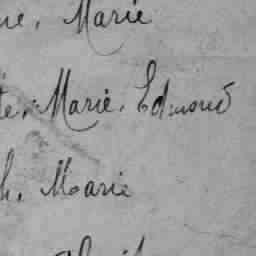 ne, Marie
te, Marie, Edmond
h, Marie